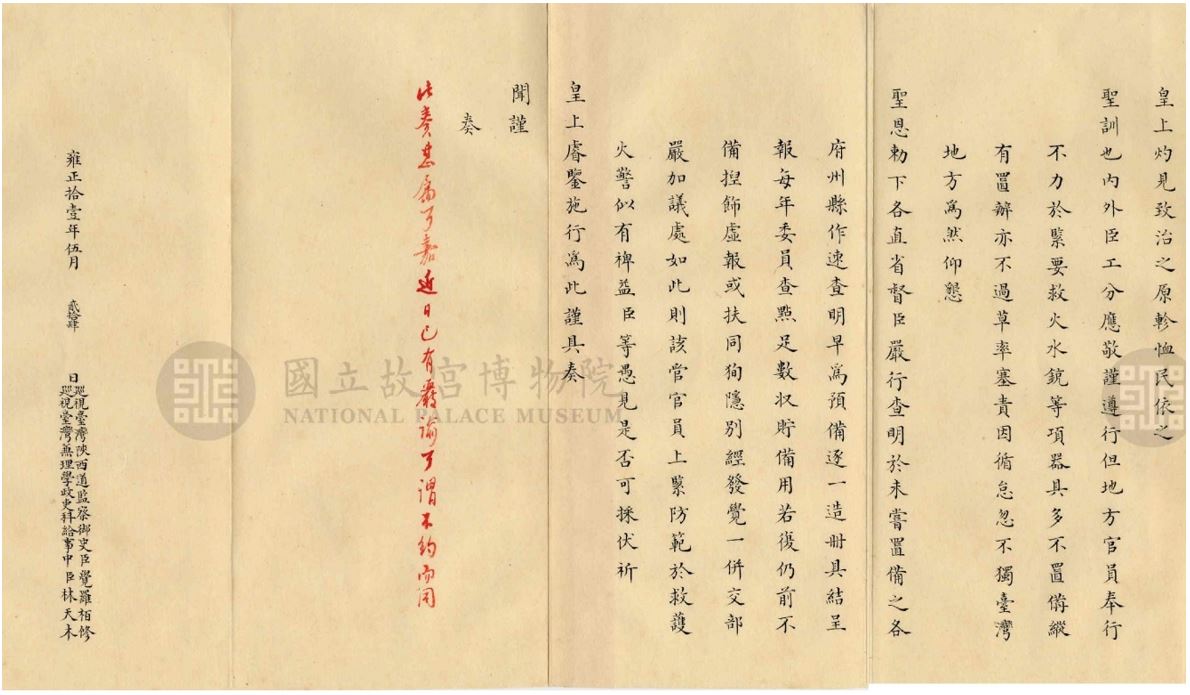 皇上灼見致治之原軫恤民依之
聖訓也內外臣工分應敬謹遵行但地方官員奉行
不力於緊要救火水銃等項器具多不置備縱
有置辦亦不過草率塞責因循怠忽不獨臺灣
地方爲然仰懇
聖恩勅下各直省督臣嚴行查明於未嘗置備之各
府州縣作速查明早爲預備逐一造冊具結呈
報每年委員查點足數收貯備用若復仍前不
備揑飾虛報或扶同狥隱別經發覺一併交部
嚴加議處如此則該管官員上緊防範於救護
火警似有裨益臣等愚見是否可採伏祈
皇上睿鑒施行爲此謹具奏
聞謹
奏
此奏甚屬可嘉近日已有嚴諭可謂不約而同
雍正拾壹年伍月 貳拾肆 日
巡視臺灣陝西道監察御史臣覺羅栢修
巡視臺灣兼理學政吏科給事中臣林天木
國立故宮博物院
NATIONAL PALACE MUSEUM